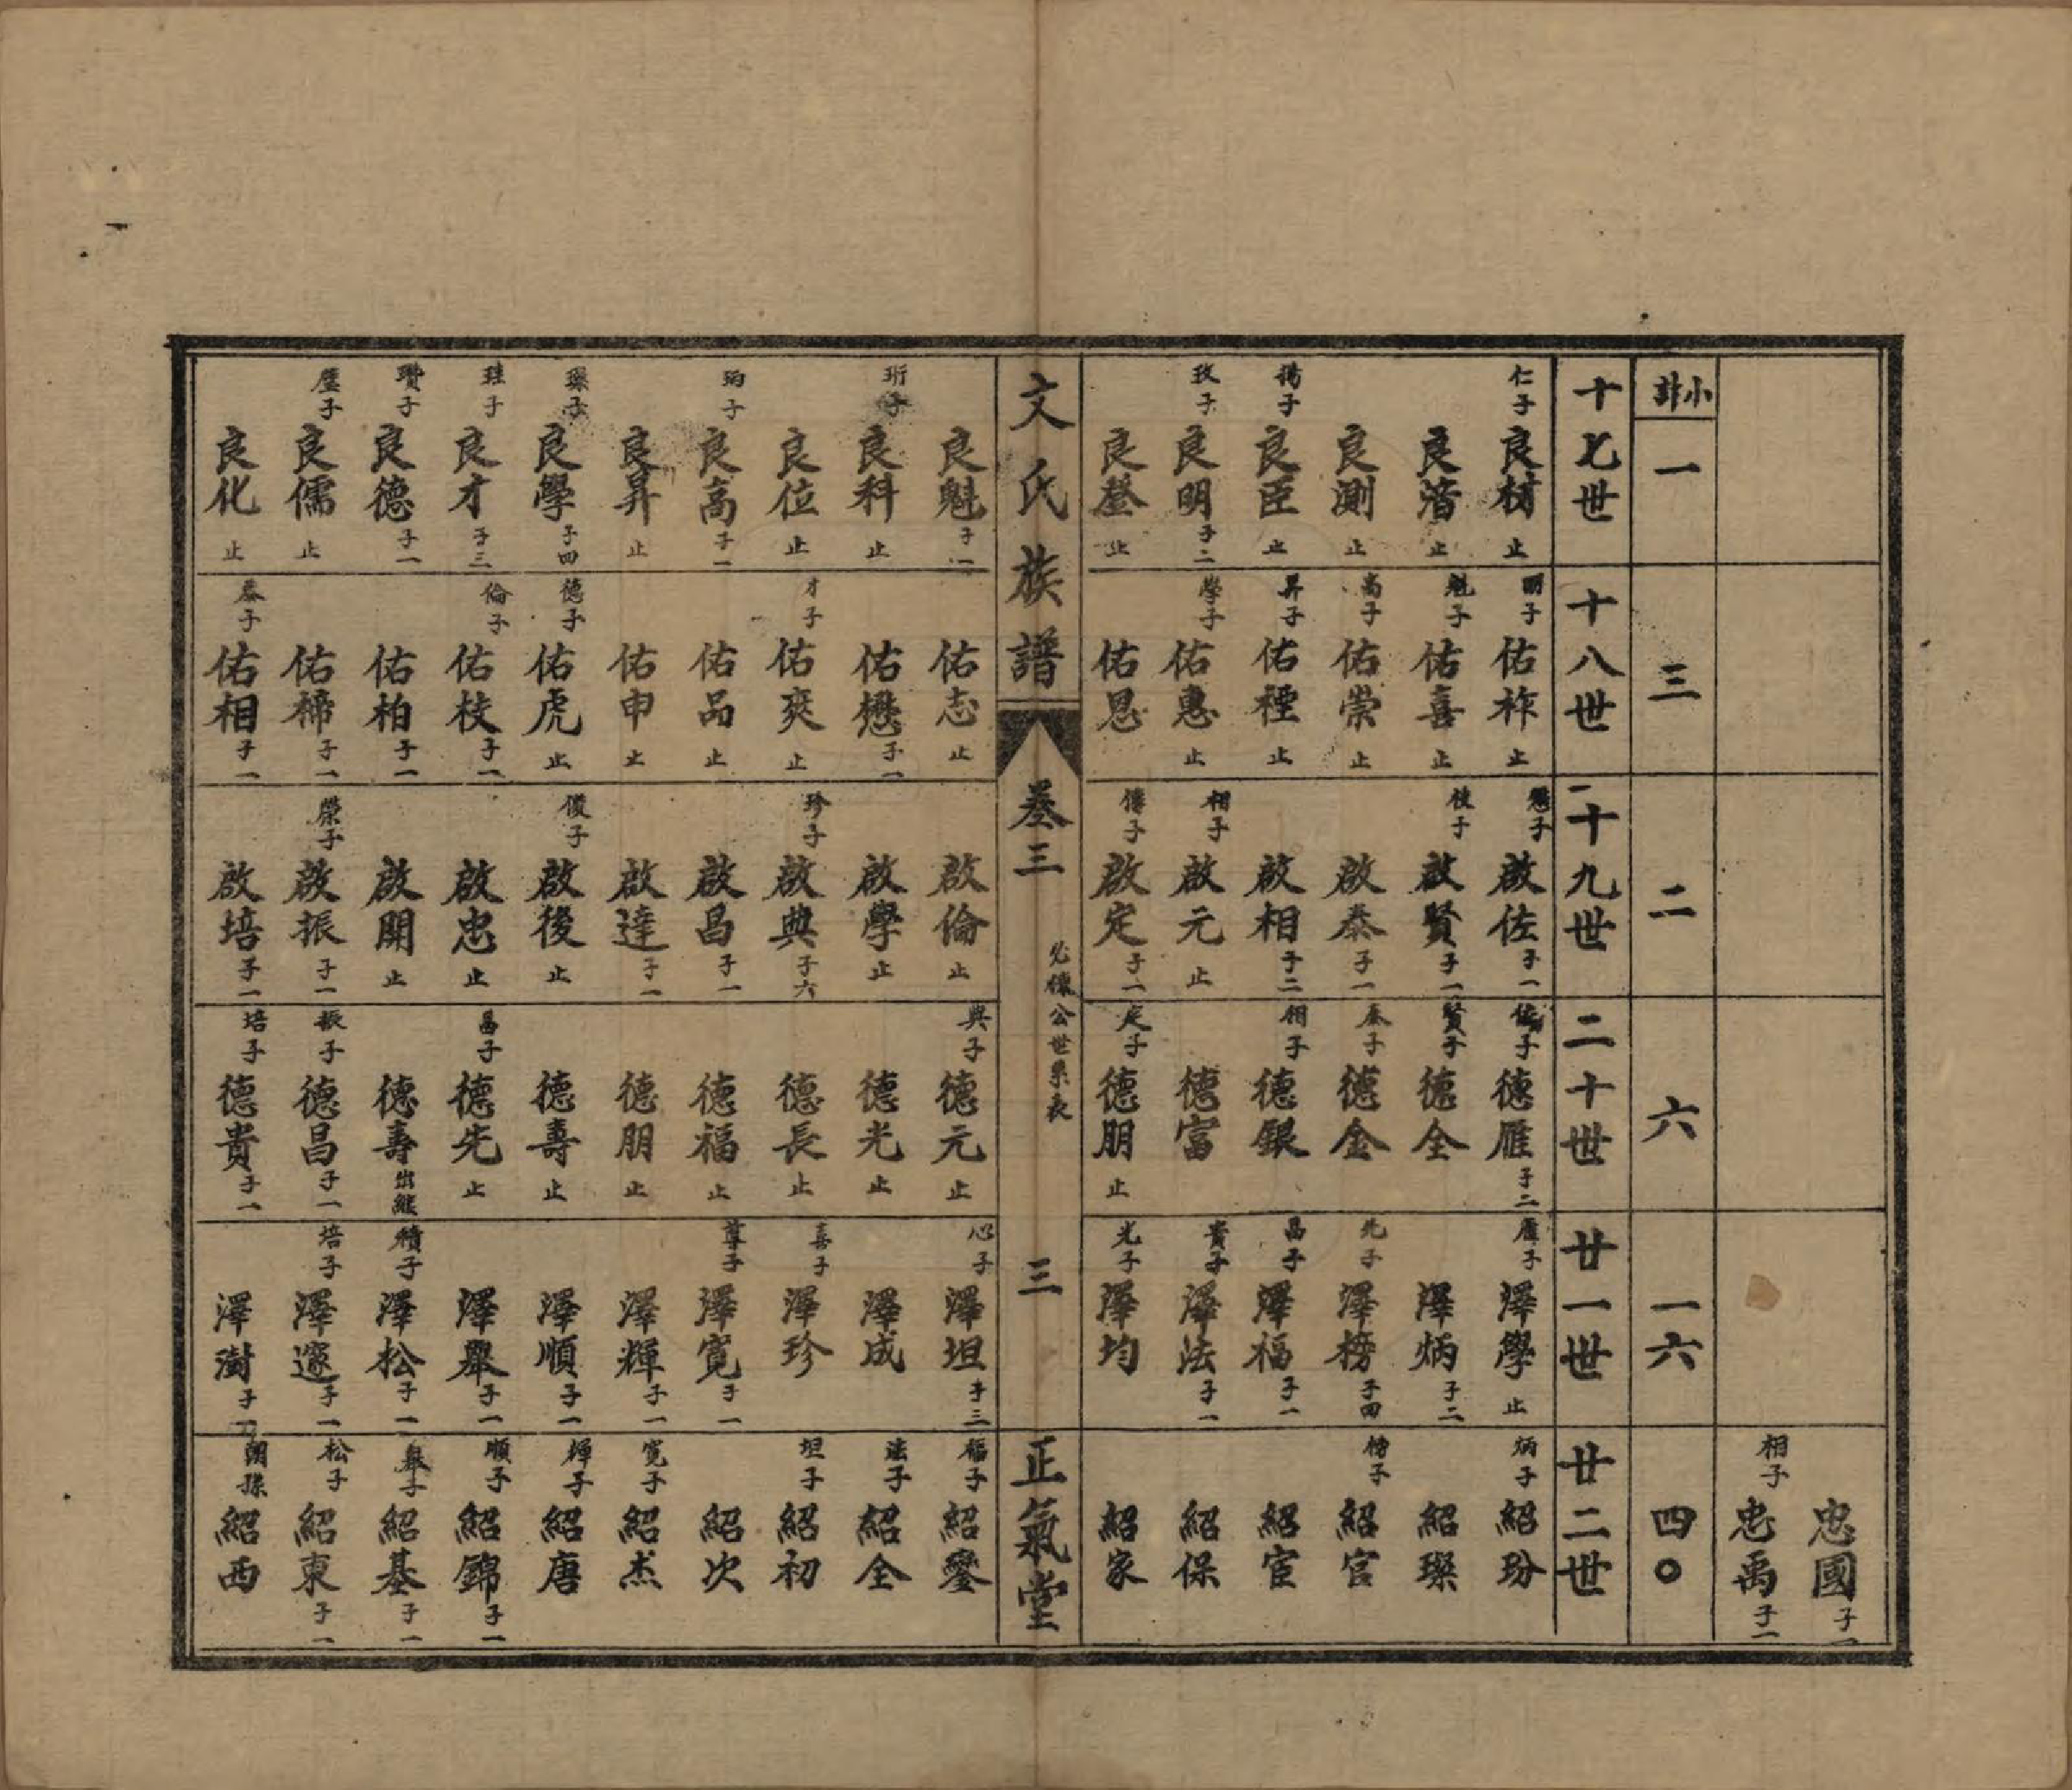 忠國子一
相子忠禹子一
小計
一
三
二
六
一六
四〇
十七世
仁子良材止
良濳止
良測止
揚子良臣止
玫子良明子二
良登止
良魁子一
珩子良科止
良位止
珣子良高子一
良昇止
璪子良學子四
珪子良才子三
瓚子良德子一
良儒止
良化止
十八世
明子佑祚止
魁子佑喜止
高子佑崇止
昇子佑種止
學子佑惠止
佑恩
佑志止
佑懋子一
才子佑爽止
佑品止
佑申止
德子佑虎止
倫子佑枝子一
佑柏子一
佑楴子一
泰子佑相子一
十九世
懋子啟佐子一
枝子啟賢子一
啟泰子一
啟相子二
相子啟元止
傳子啟定子一
啟倫止
啟學止
珍子啟典子六
啟昌子一
啟達子一
俊子啟後止
啟忠止
啟開止
榮子啟振子一
啟培子一
二十世
佐子德雁子二
賢子德全
泰子德金
相子德銀
德富
定子德朋止
典子德元止
德光止
德長止
德福止
德朋止
德壽止
昌子德先止
德壽出繼
振子德昌子一
培子德貴子一
廿一世
雁子澤學止
澤炳子二
先子澤榜子四
昌子澤福子一
貴子澤法子一
光子澤均
心子澤坦子三
澤成
喜子澤珍
尊子澤寬子一
澤輝子一
澤順子一
澤舉子一
積子澤松子一
培子澤邃子一
澤澍子一
廿二世
炳子紹玢
紹璨
榜子紹官
紹宦
紹保
紹家
福子紹鑾
法子紹全
坦子紹初
紹次
寬子紹杰
輝子紹唐
順子紹錦子一
舉子紹基子一
松子紹東子一
開孫紹西
文氏族譜
卷三
必懷公世系表
三
正氣堂